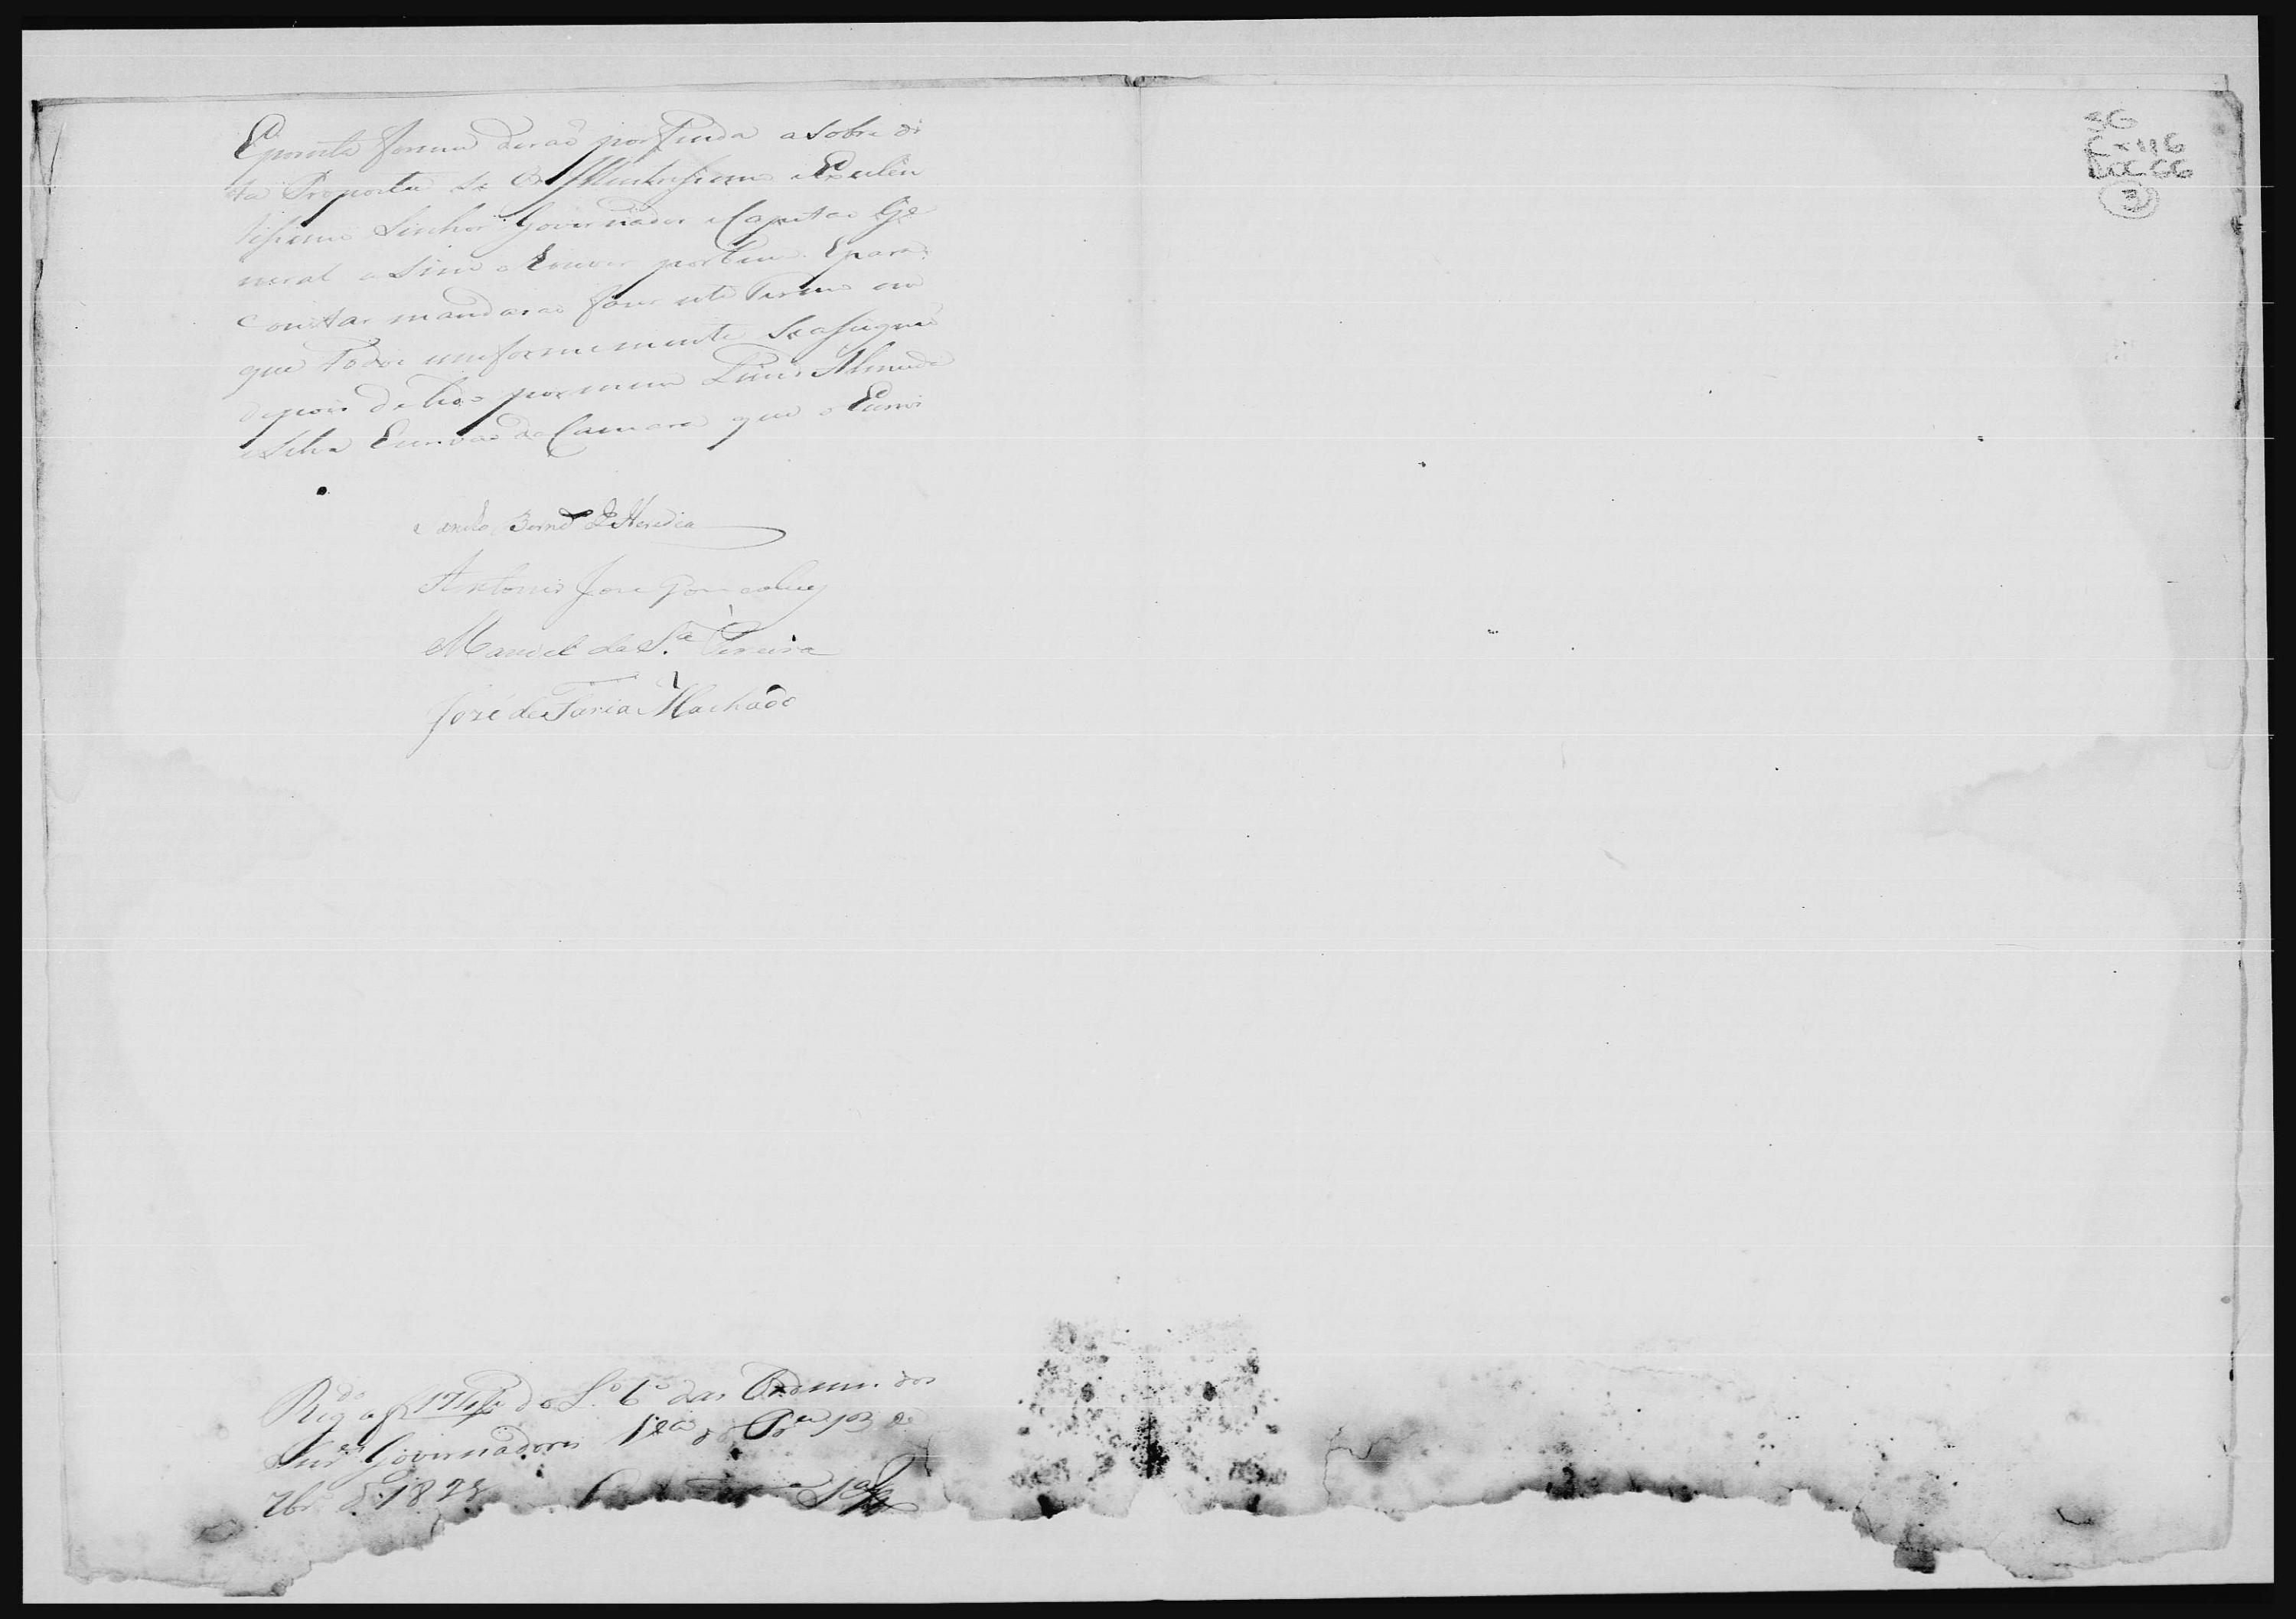 E por esta forma derão por finda a sobre di
ta Proposta Se o Illustrissimo e Excelen
tissimo Senhor Governador e Capitão Ge
neral a Sim o houver por bem. E para
constar mandarão fazer este Termo em
que todos uniformemente Se assignão
depois de lido por mim Almeida
e Silva Escrivão da Camara que o Escrevi
Bernd. d'Heredia
Antonio Joze Gonçalves
Manoel de S.ta Pereira
Joze de Faria Machado
Regdo a f do L.o 6.o das Ordens dos
Snres Governadores 13 de
7br.o d. 1828
SG
Cx 116
DOC 66
3